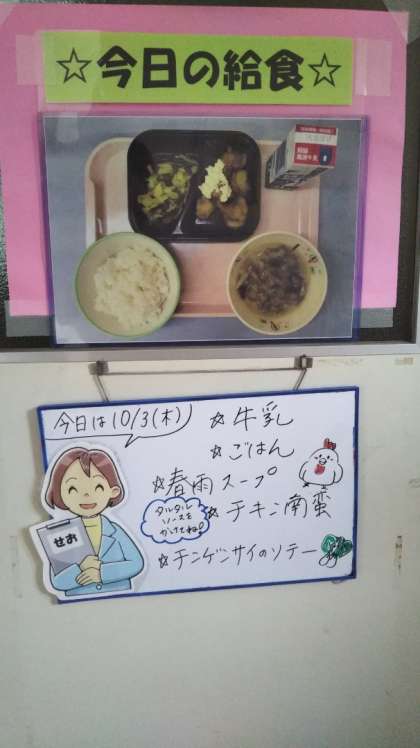 ☆今日の給食☆
今日は10/3(木)
☆牛乳
☆ごはん
☆春雨スープ
☆チキン南蛮
タルタル
ソースを
かけてね!
☆チンゲンサイのソテー
せお